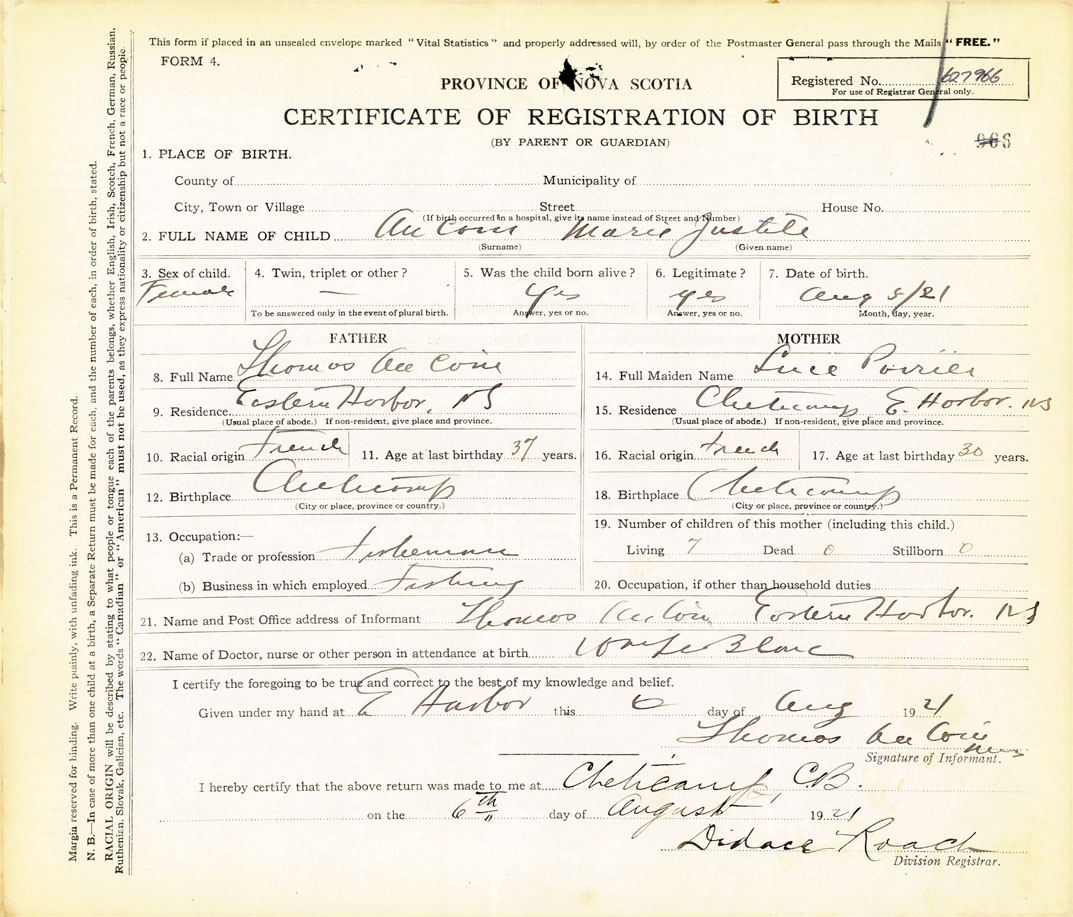 This form if placed in an unsealed envelope marked "Vital Statistics" and properly addressed will, by order of the Postmaster General pass through the Mails "FREE."
FORM 4.
PROVINCE OF NOVA SCOTIA
Registered No. 627966
For use of Registrar General only.
CERTIFICATE OF REGISTRATION OF BIRTH
(BY PARENT OR GUARDIAN)
966
1. PLACE OF BIRTH.
County of Municipality of
City, Town or Village Street House No.
(If birth occurred in a hospital, give its name instead of Street and Number)
2. FULL NAME OF CHILD Au Coin Marie Justite
(Surname) (Given name)
3. Sex of child. 4. Twin, triplet or other? 5. Was the child born alive? 6. Legitimate? 7. Date of birth.
Female — Yes yes Aug 5/21
To be answered only in the event of plural birth. Answer, yes or no. Answer, yes or no. Month, day, year.
FATHER
8. Full Name Thomas Au Coin
9. Residence Eastern Harbor, NS
(Usual place of abode.) If non-resident, give place and province.
10. Racial origin French 11. Age at last birthday 37 years.
12. Birthplace Cheticamp
(City or place, province or country.)
13. Occupation:—
(a) Trade or profession Fisherman
(b) Business in which employed Fishing
MOTHER
14. Full Maiden Name Luce Poirier
15. Residence Cheticamp E. Harbor. NS
(Usual place of abode.) If non-resident, give place and province.
16. Racial origin French 17. Age at last birthday 30 years.
18. Birthplace Cheticamp
(City or place, province or country.)
19. Number of children of this mother (including this child.)
Living 7 Dead 0 Stillborn 0
20. Occupation, if other than household duties
21. Name and Post Office address of Informant Thomas Au Coin Eastern Harbor. NS
22. Name of Doctor, nurse or other person in attendance at birth Blanc
I certify the foregoing to be true and correct to the best of my knowledge and belief.
Given under my hand at E Harbor this 6 day of Aug 1921
Thomas Au Coin
Signature of Informant.
I hereby certify that the above return was made to me at Cheticamp, C.B.
on the 6th day of August 1921
Didace Roach
Division Registrar.
Margin reserved for binding. Write plainly, with unfading ink. This is a Permanent Record.
N. B.—In case of more than one child at a birth, a Separate Return must be made for each, and the number of each, in order of birth, stated.
RACIAL ORIGIN will be described by stating to what people or tongue each of the parents belongs, whether English, Irish, Scotch, French, German, Russian,
Ruthenian, Slovak, Galician, etc. The words "Canadian" or "American" must not be used, as they express nationality or citizenship but not a race or people.